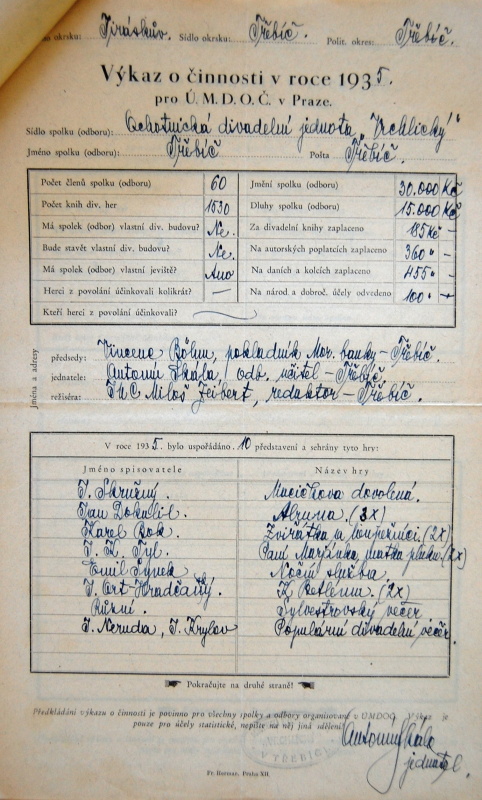 okrsku: Jiráskův. Sídlo okrsku: Třebíč. Polit. okres: Třebíč.
Výkaz o činnosti v roce 1935.
pro Ú. M. D. O. Č. v Praze.
Sídlo spolku (odboru): Ochotnická divadelní jednota „Vrchlický“
Jméno spolku (odboru): Třebíč Pošta Třebíč.
Počet členů spolku (odboru) 60 Jmění spolku (odboru) 30.000 Kč
Počet knih div. her 1530 Dluhy spolku (odboru) 15.000 Kč
Má spolek (odbor) vlastní div. budovu? Ne. Za divadelní knihy zaplaceno 185 Kč –
Bude stavět vlastní div. budovu? Ne. Na autorských poplatcích zaplaceno 360 " –
Má spolek (odbor) vlastní jeviště? Ano Na daních a kolcích zaplaceno 455 " –
Herci z povolání účinkovali kolikrát? — Na národ. a dobroč. účely odvedeno 100 " –
Kteří herci z povolání účinkovali?
Jména a adresy
předsedy: Vincenc Böhm, pokladník Mor. banky – Třebíč.
jednatele: Antonín Skála, odb. učitel – Třebíč.
režiséra: JUC Miloš Zeibert, redaktor – Třebíč.
V roce 1935. bylo uspořádáno 10 představení a sehrány tyto hry:
Jméno spisovatele Název hry
J. Skružný. Macíchova dovolená.
Ivan Dokulil. Abruna. (3x)
Karel Bok. Zvířátka a loupežníci. (2x)
J. K. Tyl. Paní Marjánka, matka pluku. (2x)
Emil Synek Noční služba.
J. Ort Hradčaský. Z Betlema. (2x)
Různí. Sylvestrovský večer
J. Neruda, J. Krylov Populární divadelní večer.
Pokračujte na druhé straně!
Předkládání výkazu o činnosti je povinno pro všechny spolky a odbory organisované v ÚMDOČ. Výkaz je
pouze pro účely statistické, nepište na něj jiná sdělení.
V TŘEBÍČI
Antonín Skála
jednatel.
Fr. Borovar, Praha XII.